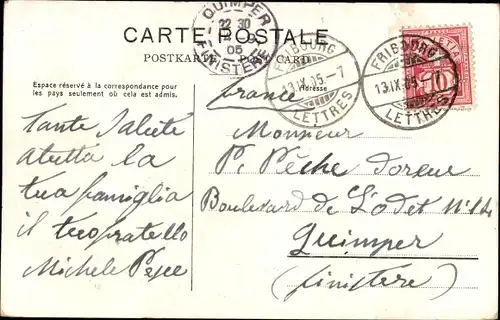 CARTE POSTALE
POSTKARTE
CARD
QUIMPER
22 30
05
FINISTERE
FRIBOURG
13.IX.05.-7
LETTRES
FRIBOURG
13.IX.05.-7
LETTRES
Espace réservé à la correspondance pour
les pays seulement où cela est admis.
Adresse
France
Monsieur
P. Pêche doreur
Boulevard de l'Odet No 14
Quimper
(Finistere)
Tante Salute
a tutta la
tua famiglia
il tuo fratello
Michele Pesce